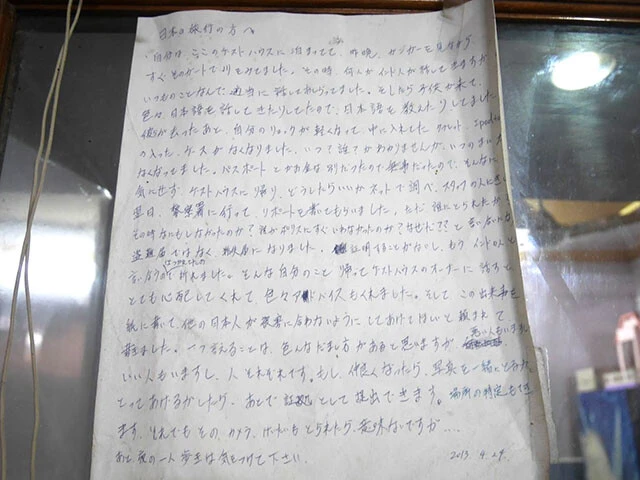 日本の旅行の方へ
自分は、ここのゲストハウスに泊まってて、昨晩、ガンガーを見ながら
すぐそのガートで川をみてました。その時、何人かインド人が話して来ますが
いつものことなんで、適当に話してあしらってました。そしたら子供が来て、
色々日本語を話してきたりしてたので、日本語を教えたりしてました
彼が去ったあと、自分のリュックが軽くなって、中に入れてた タブレット、
の入った、ケースがなくなりました。いつ誰でかわかりませんが、いつのまにか
なくなってました。パスポートとかお金は別だったので無事だったので、そんなに
気にせず、ゲストハウスに帰り、どうしたらいいかネットで調べ、スタッフの人に
翌日、警察署に行って、リポートを書いてもらいました。ただ、誰にとられたか?
その時なにもしなかったのか? 誰かポリスにすぐいわなかったのか? なぜだ?? と言い合いになり
盗難届ではなく、紛失届になりました。証明することがないし、もう インドの人
言いなりの 折れました。そんな自分のこと 帰ってゲストハウスのオーナーに 話すと
とても心配してくれて 色々アドバイスもくれました。そして この出来事を
紙に書いて、他の日本人が被害に合わないように してあげてほしいと 頼まれて
書きました。一つ言えることは、色んなだまし方があると思いますが 悪い人もいますし
いい人もいますし、人 それぞれです。もし、仲良くなったら、写真を一緒にとるか、
とってあげるかしたら、あとで 証拠として 提出できます。場所の特定もでき
ます。なんでも その、カメラ、ケータイもとられたら、意味ないですが...
あと、夜の一人歩きは気をつけて下さい。 2013. 4. 29.